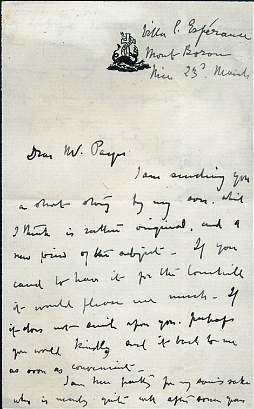 Villa l'Espérance
Mont Boron
Nice 23rd March
Dear Mr. Payn
I am sending you
a short story by my son, which
I think is rather original, and a
new view of the subject - If you
cared to have it for the Cornhill
it would please me much - If
it does not suit you, perhaps
you would kindly send it back to me
as soon as convenient -
I am here partly for my son's sake
who is nearly quite well after some years